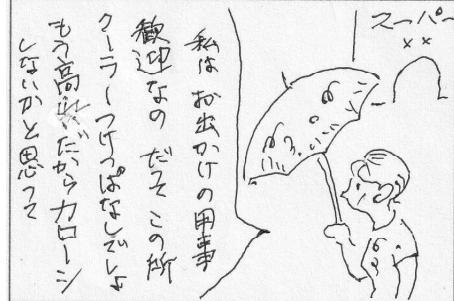 スーパー
××
私は お出かけの用事
歓迎なの だって この所
クーラーつけっぱなしでしょ
もう だからカローシ
しないかと思って